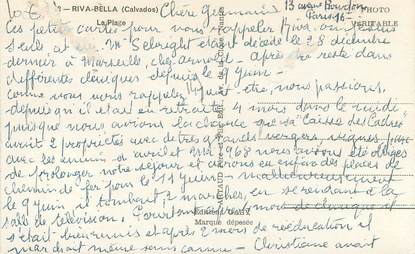 2 - RIVA-BELLA (Calvados)
La Plage
Chère Germaine
13 avenue Bourdon
Paris 16
PHOTO
VÉRITABLE
Ces petites cartes pour vous rappeler Riva, où je suis
seule et M. Selbright étant décédé le 28 décembre
dernier à Marseille, chez Arnold - après être resté dans
différentes cliniques depuis le 9 juin -
comme vous vous rappelez peut-être, nous passions,
depuis qu'il était en retraite 4 mois dans le midi,
puisque nous avions la chance que sa Caisse des Cadres
avait 2 propriétés avec de très grands vergers, vignes,
avec les en avril mai 1968 nous avons été obligés
de prolonger notre séjour et avions enfin des places de
chemin de fer pour le 11 juin malheureusement
le 9 juin il tombait 2 marches, en se rendant à la
salle de télévision. mois de clinique il
s'était bien remis et après 2 mois de rééducation il
marchait même sans canne - Christiane avait
Marque déposée